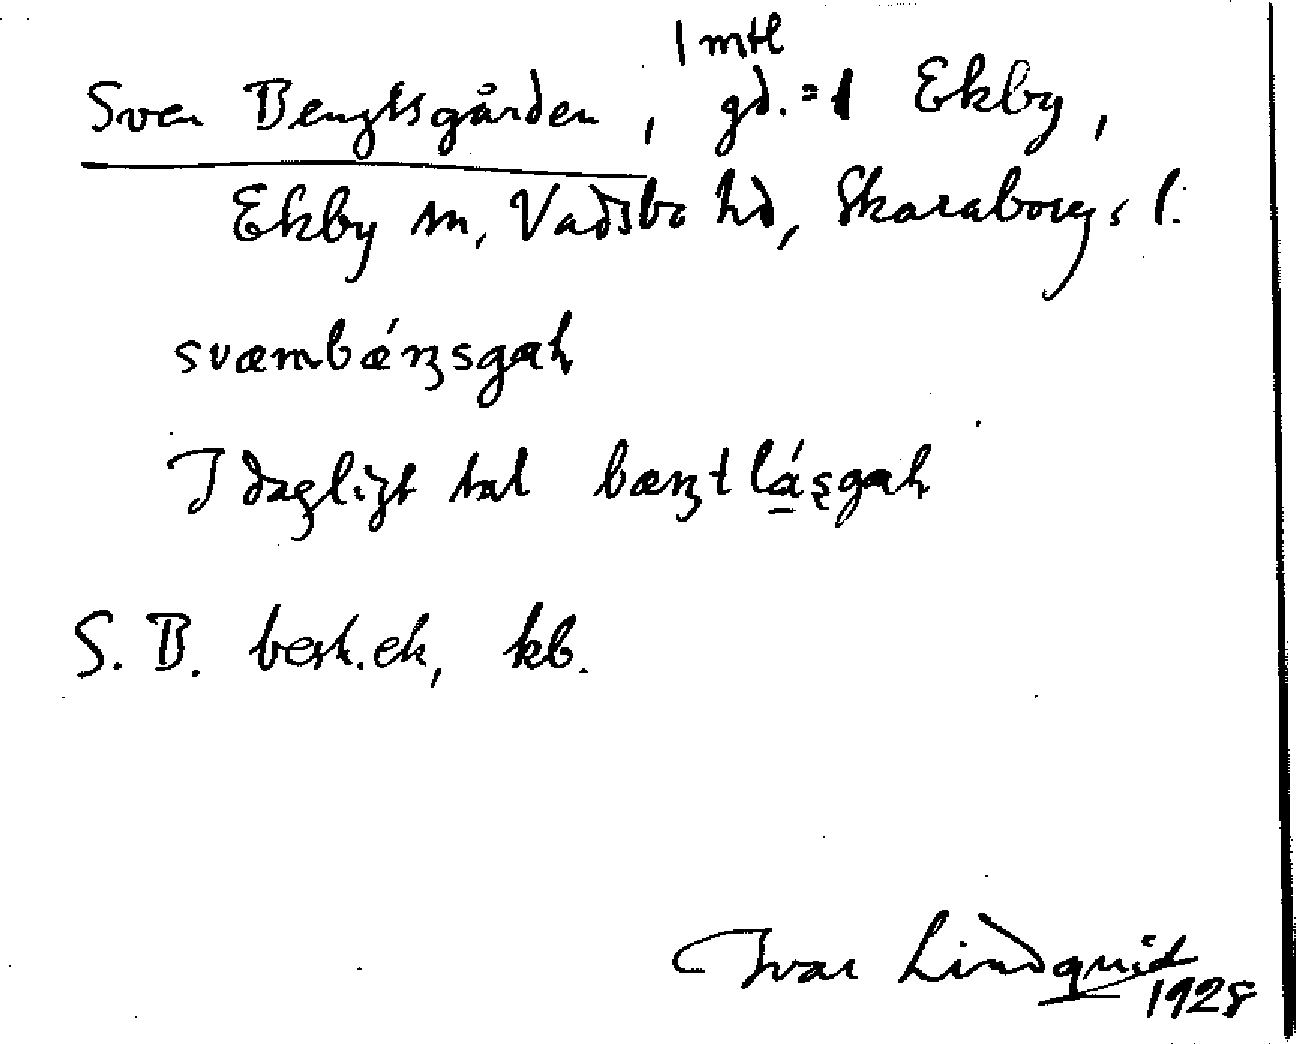 1 mtl
Sven Bengtsgården, gd. = 1 Ekby,
Ekby sn, Vadsbo hd, Skaraborgs l.
svæmbǽnʒsgah
I dagligt tal bænʒtlásgah
S. B. besk. ek, kb.
Ivar Lindquist
1928